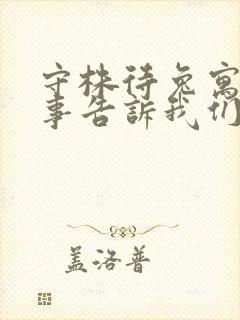 守株待兔寓
事告訴我们
盖洛普